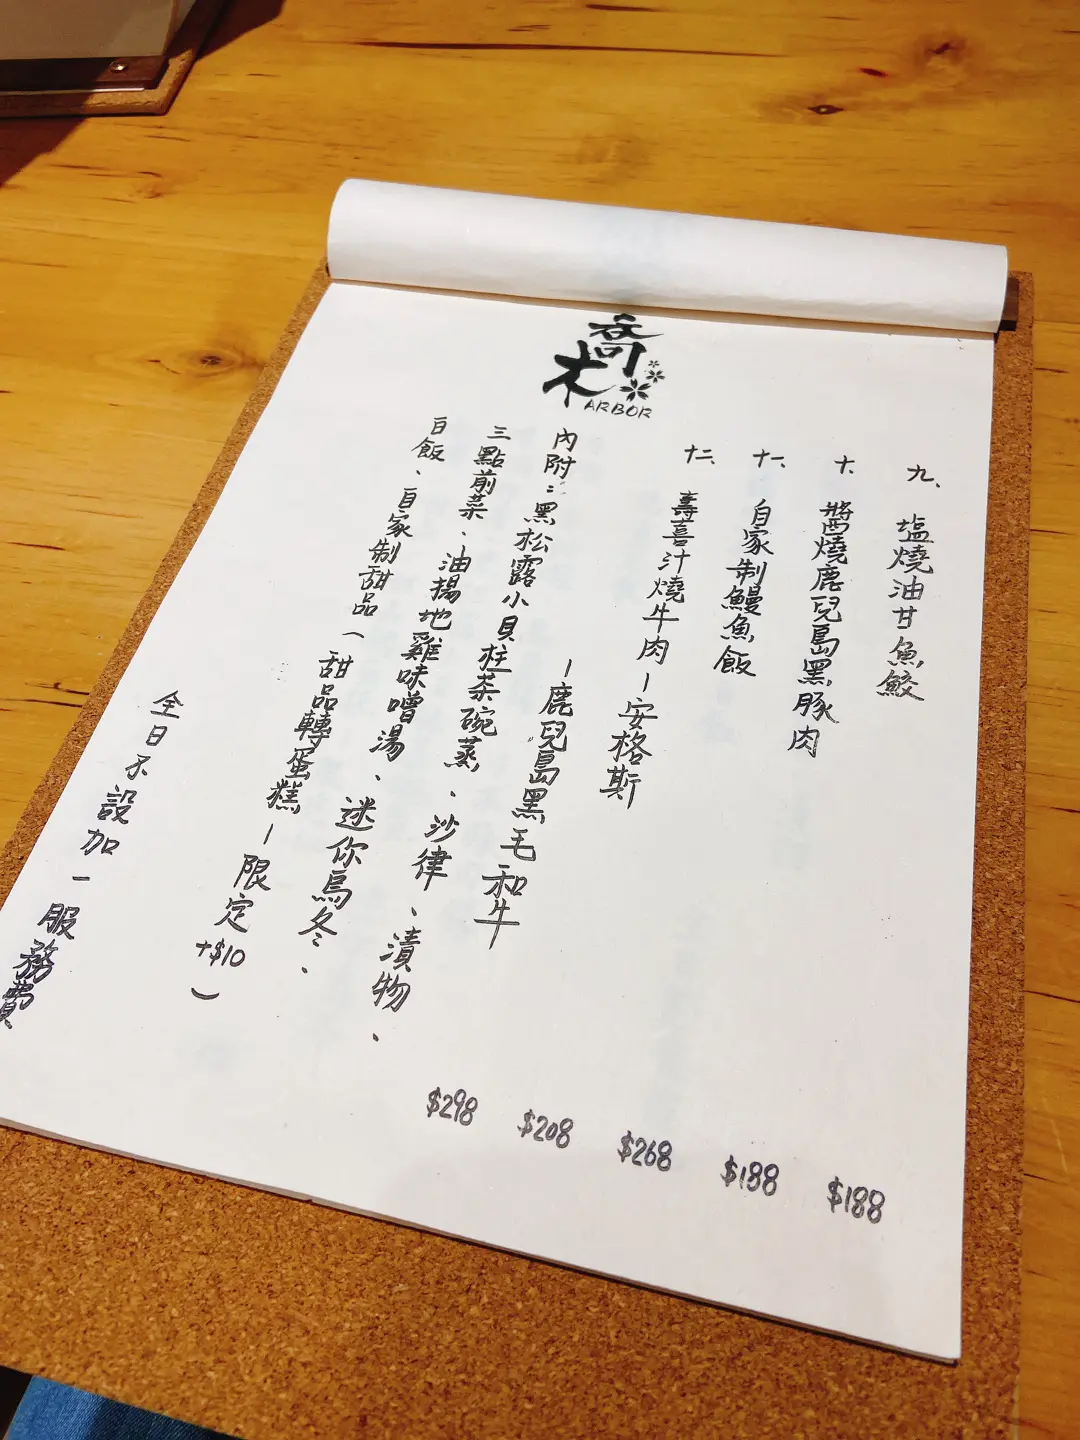 喬木
ARBOR
九、塩燒油甘魚鮫 $188
十、醬燒鹿兒島黑豚肉 $188
十一、自家制鰻魚飯 $268
十二、壽喜汁燒牛肉－安格斯 $208
－鹿兒島黑毛和牛 $298
內附：黑松露小貝柱茶碗蒸、沙律、漬物、
三點前菜、油揚地雞味噌湯、迷你烏冬、
白飯、自家制甜品（甜品轉蛋糕－限定+$10）
全日不設加一服務費